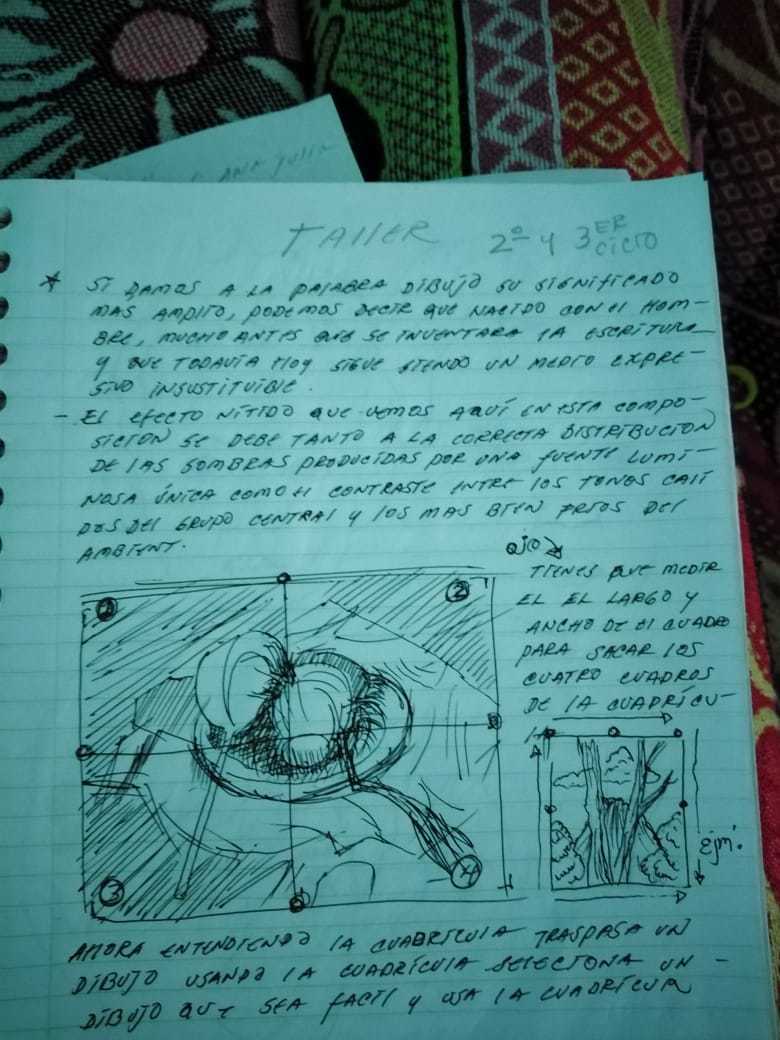 ANA JULIA
TALLER 2º Y 3ER CICLO
* SI DAMOS A LA PALABRA DIBUJO SU SIGNIFICADO
MAS AMPLIO, PODEMOS DECIR QUE NACIDO CON EL HOM-
BRE, MUCHO ANTES QUE SE INVENTARA LA ESCRITURA
Y QUE TODAVIA HOY SIGUE SIENDO UN MEDIO EXPRE-
SIVO INSUSTITUIBLE.
- EL EFECTO NÍTIDO QUE VEMOS AQUÍ EN ESTA COMPO-
SICION SE DEBE TANTO A LA CORRECTA DISTRIBUCION
DE LAS SOMBRAS PRODUCIDAS POR UNA FUENTE LUMI-
NOSA ÚNICA COMO EL CONTRASTE ENTRE LOS TONOS CALI
DOS DEL GRUPO CENTRAL Y LOS MAS BIEN FRIOS DEL
AMBIENT.
OJO
TIENES QUE MEDIR
EL EL LARGO Y
ANCHO DE EL CUADRO
PARA SACAR LOS
CUATRO CUADROS
DE LA CUADRÍCU-
LA
2
3
4
Ejm:
AHORA ENTENDIENDO LA CUADRICULA TRASPASA UN
DIBUJO USANDO LA CUADRÍCULA SELECIONA UN -
DIBUJO QUE SEA FACIL Y USA LA CUADRÍCULA